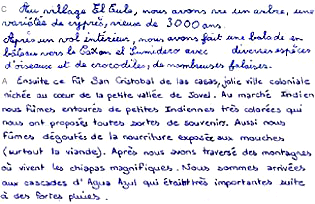 C Au village El Eule, nous avons vu un arbre, une
variétés de cyprès, vieux de 3000 ans.
Après un vol intérieur, nous avons fait une balade en
bateau vers le Cañon el Sumidero avec diverses espèces
d'oiseaux et de crocodiles, de nombreuses falaises.
A Ensuite ce fût San Cristobal de las casas, jolie ville coloniale
nichée au cœur de la petite vallée de Jovel. Au marché Indien
nous fûmes entourés de petites Indiennes très colorées qui
nous ont proposés toutes sortes de souvenirs. Aussi nous
fûmes dégoutés de la nourriture exposée aux mouches
(surtout la viande). Après nous avons traversé des montagnes
où vivent les chiapas magnifiques. Nous sommes arrivées
aux cascades d'Agua Azul qui étaient très importantes suite
à des fortes pluies.